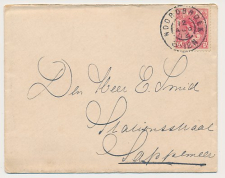 NOORDBROEK
Den Heer E. Smid
Stationsstraat
Sappemeer